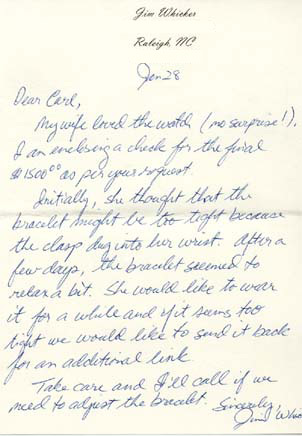 Jim Whicker
Raleigh, NC
Jan 28
Dear Carl,
My wife loved the watch (no surprise!).
I am enclosing a check for the final
$1500⁰⁰ as per your request.
Initially, she thought that the
bracelet might be too tight because
the clasp dug into her wrist. After a
few days, the bracelet seemed to
relax a bit. She would like to wear
it for a while and if it seems too
tight we would like to send it back
for an additional link
Take care and I'll call if we
need to adjust the bracelet. Sincerely,
Jim